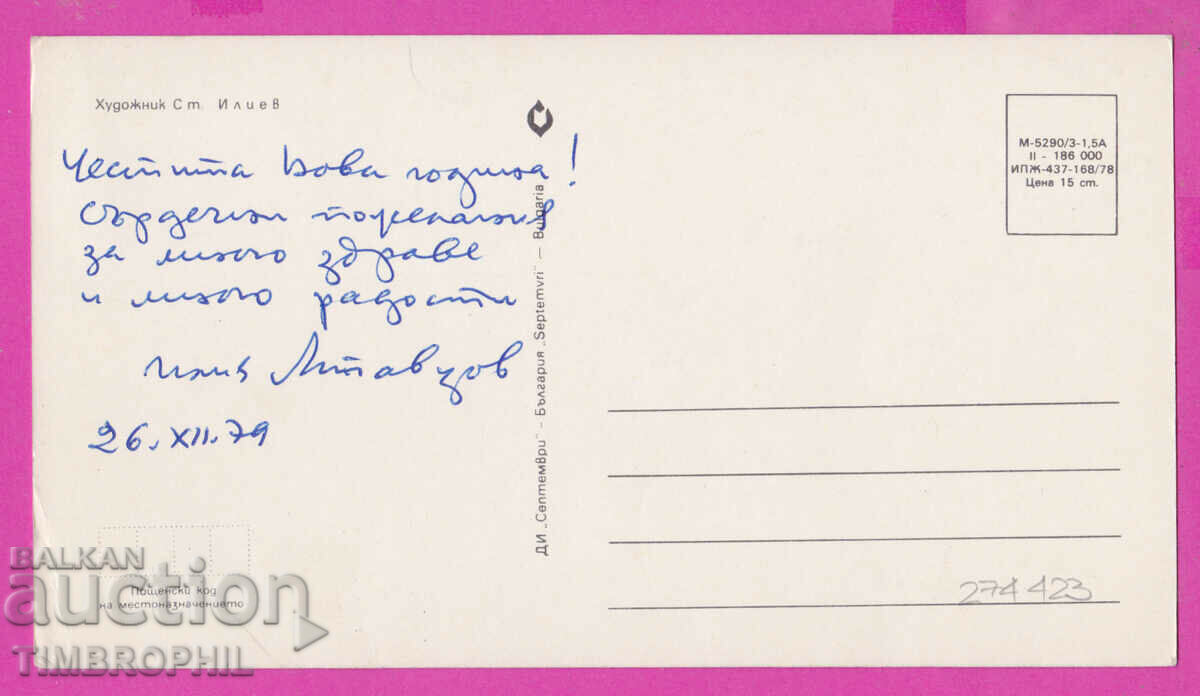 Художник Ст. Илиев
Честита Нова година!
сърдечни пожелания
за много здраве
и много радости
26.XII.79
ДИ „Септември" – България „Septemvri" – Bulgaria
М-5290/3-1,5А
II - 186 000
ИПЖ-437-168/78
Цена 15 ст.
274423
Пощенски код
на местоназначението
BALKAN
auction
TIMBROPHIL